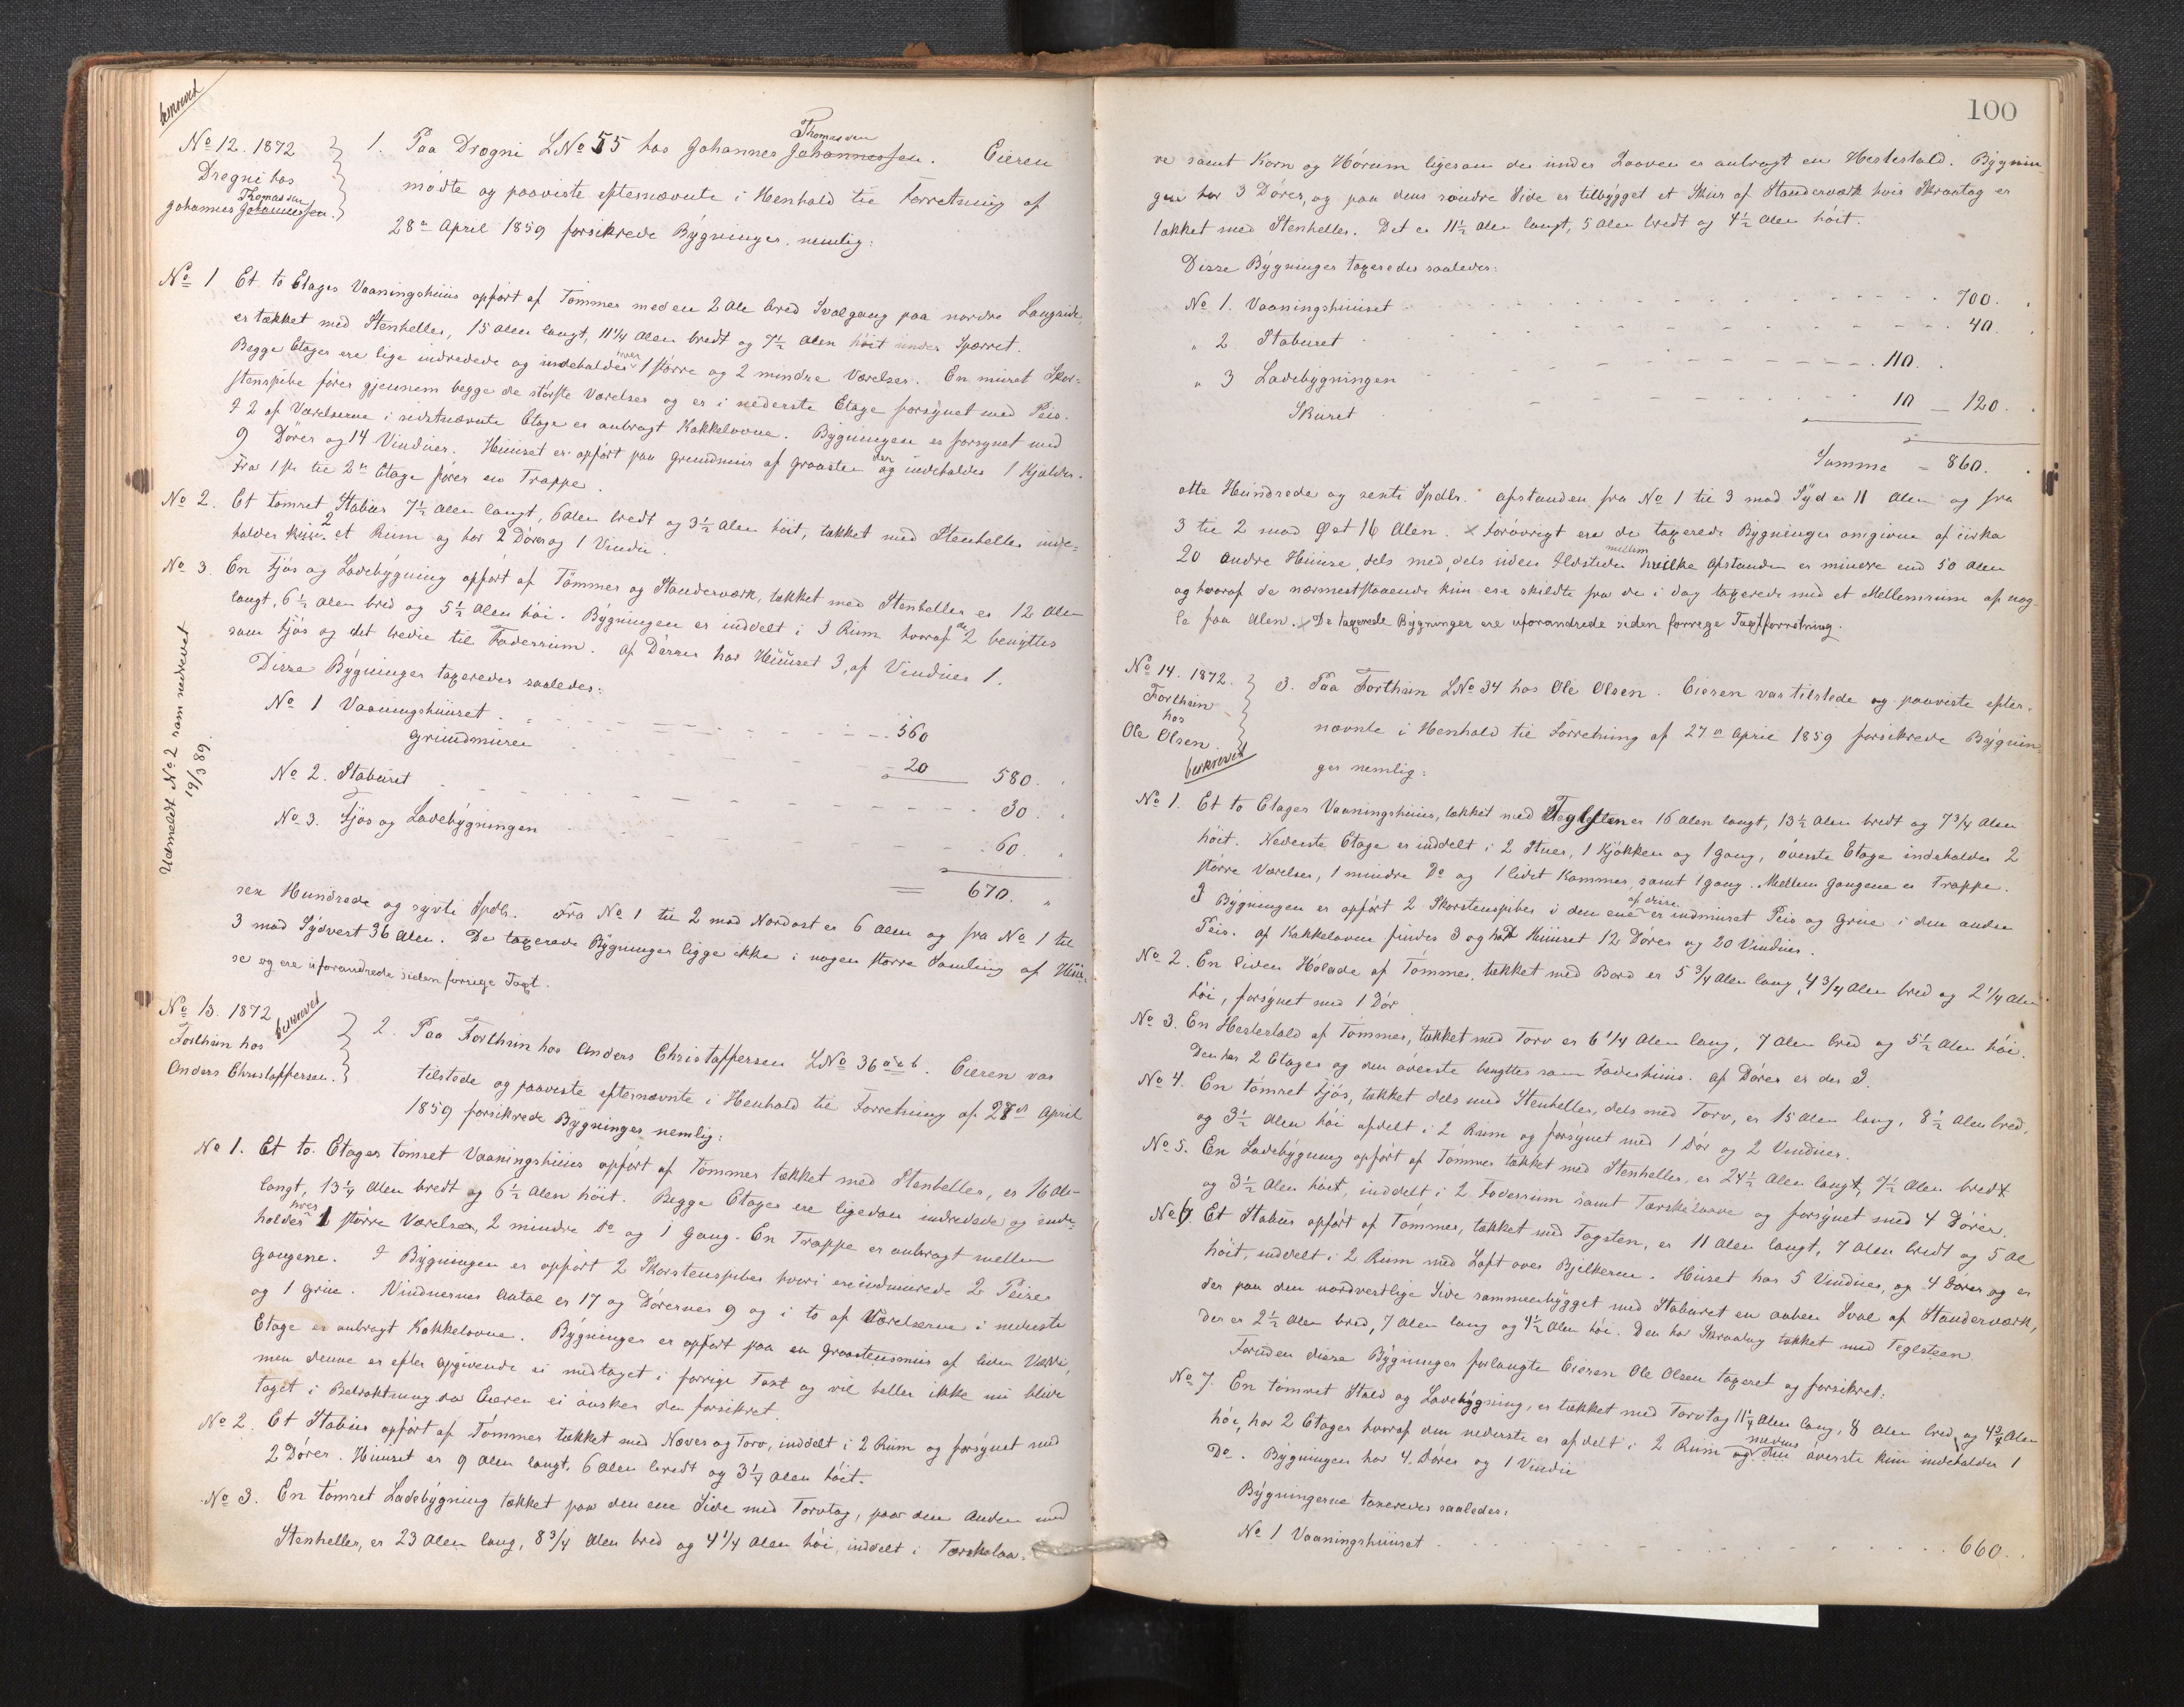 beskrevet
No 12. 1872
Dregni hos
Thomassen
Johannes Johannessen.
1. Paa Dregni LNo 55 hos Johannes Johannessen. Eieren
Thomassen
mödte og paaviste efternævnte i Henhold til Forretning af
28de April 1859 forsikrede Bygninger, nemlig:
No 1 Et to Etages Vaaningshuus opfört af Tömmer med en 2 Alen bred Svalgang paa nordre Langside,
er tækket med Stenheller, 15 Alen langt, 11 1/4 Alen bredt og 7 1/2 Alen höit under Spærret.
Begge Etager ere lige indredede og indeholder hver 1 större og 2 mindre Værelser. En muret Skor-
stenspibe förer gjennem begge de störste Værelser og er i nederste Etage forsynet med Peis.
I 2 af Værelserne i sidstnævnte Etage er anbragt Kakkelovne. Bygningen er forsynet med
9 Dörer og 14 Vinduer. Huuset er opfört paa Grundmuur af Graasten der og indeholder 1 Kjælder.
Fra 1ste til 2den Etage förer en Trappe.
No 2. Et tömret Stabur 7 1/2 Alen langt, 6 Alen bredt og 3 1/2 Alen höit, tækket med Stenheller inde-
holder kun 2 et Rum og har 2 Dörer og 1 Vindu.
No 3. En Fjös og Ladebygning opfört af Tömmer og Standerværk, tækket med Stenheller er 12 Alen
langt, 6 1/2 Alen bred og 5 1/2 Alen höi. Bygningen er inddelt i 3 Rum hvoraf de 2 benyttes
som Fjös og det tredie til Foderrum. Af Dörrer har Huuset 3, af Vinduer 1.
Disse Bygninger taxeredes saaledes:
No 1 Vaaningshuuset 560
Grundmuren 20 580.
No 2. Staburet 30.
No 3. Fjös og Ladebygningen 60.
= 670.
sex Hundrede og sytti Spdlr. Fra No 1 til 2 mod Nordost er 6 Alen og fra No 1 til
3 mod Sydvest 36 Alen. De taxerede Bygninger ligge ikke i nogen större Samling af Huu-
se og ere uforandrede siden forrige Taxt.
Udmeldt No 2 som nedrevet
19/3 89.
No 13. 1872
beskrevet
Forthun hos
Anders Christoffersen.
2. Paa Forthun hos Anders Christoffersen LNo 36 a & b. Eieren var
tilstede og paaviste efternævnte i Henhold til Forretning af 28de April
1859 forsikrede Bygninger nemlig:
No 1. Et to Etages tömret Vaaningshuus opfört af Tömmer tækket med Stenheller, er 16 Ale-
langt, 13 1/4 Alen bredt og 6 1/2 Alen höit. Begge Etager ere ligedan indredede og inde-
holder hver 1 större Værelser, 2 mindre Do og 1 Gang. En Trappe er anbragt mellem
Gangene. I Bygningen er opfört 2 Skorstenspiber hvori ere indmurede 2 Peiser
og 1 Grue. Vinduernes Antal er 17 og Dörernes 9 og i to af Værelserne i nederste
Etage er anbragt Kakkelovne. Bygningen er opfört paa en Graastensmuur af liden Værdi,
men denne er efter Opgivende ei medtaget i forrige Taxt og vil heller ikke nu blive
taget i Betraktning da Eieren ei önsker den forsikret.
No 2. Et Stabur opfört af Tömmer tækket med Næver og Torv, inddelt i 2 Rum og forsynet med
2 Dörer. Huuset er 9 Alen langt, 6 Alen bredt og 3 1/4 Alen höit.
No 3. En tömret Ladebygning tækket paa den ene Side med Torvtag, paa den Anden med
Stenheller, er 23 Alen lang, 8 3/4 Alen bred og 4 1/4 Alen höi, inddelt i Tærskelaa-
100
ve samt Korn og Hörum ligesom der under Laaven er anbragt en Hestestald. Bygnin-
gen har 3 Dörer, og paa dens söndre Side er tilbygget et Skur af Standerværk hvis Skraatag er
tækket med Stenheller. Det er 11 1/2 Alen langt, 5 Alen bredt og 4 1/2 Alen höit.
Disse Bygninger taxeredes saaledes:
No 1. Vaaningshuuset 700.
" 2 Staburet 40.
" 3 Ladebygningen 110.
Skuret 10 — 120.
Summa = 860.
otte Hundrede og sexti Spdlr. Afstanden fra No 1 til 3 mod Syd er 11 Alen og fra
3 til 2 mod Öst 16 Alen. × Forövrigt ere de taxerede Bygninger omgivne af cirka
20 andre Huuse, dels med, dels uden Ildsteder mellem hvilke Afstanden er mindre end 50 Alen
og hvoraf de nærmeststaaende kun ere skildte fra de i dag taxerede med et Mellemrum af nog-
le faa Alen. × De taxerede Bygninger ere uforandrede siden forrige Taxtforretning.
No 14. 1872.
Forthun
hos
Ole Olsen.
beskrevet
3. Paa Forthun LNo 34 hos Ole Olsen. Eieren var tilstede og paaviste efter-
nævnte i Henhold til Forretning af 27de April 1859 forsikrede Bygnin-
ger nemlig:
No 1. Et to Etages Vaaningshuus, tækket med Teglsten er 16 Alen langt, 13 1/2 Alen bredt og 7 3/4 Alen
höit. Nederste Etage er inddelt i 2 Stuer, 1 Kjökken og 1 Gang, överste Etage indeholder 2
större Værelser, 1 mindre Do og 1 lidet Kammer, samt 1 Gang. Mellem Gangene er Trappe.
I Bygningen er opfört 2 Skorstenspiber i den ene af disse er indmuret Peis og Grue i den anden
Peis. Af Kakkelovne findes 3 og har Huuset 12 Dörer og 20 Vinduer.
No 2. En liden Hölade af Tömmer, tækket med Bord er 5 3/4 Alen lang, 4 3/4 Alen bred og 2 1/4 Alen
höi, forsynet med 1 Dör
No 3. En Hestestald af Tömmer, tækket med Torv er 6 1/4 Alen lang, 7 Alen bred og 5 1/2 Alen höi.
Den har 2 Etager og den överste benyttes som Foderhuus. Af Dörer er der 3.
No 4. En tömret Fjös, tækket dels med Stenheller, dels med Torv, er 15 Alen lang, 8 1/2 Alen bred,
og 3 1/2 Alen höi afdelt i 2 Rum og forsynet med 1 Dör og 2 Vinduer.
No 5. En Ladebygning opfört af Tömmer tækket med Stenheller, er 24 1/2 Alen langt, 7 1/2 Alen bredt
og 3 1/2 Alen höit, inddelt i 2 Foderrum samt Tærskelaave og forsynet med 4 Dörer.
No 6. Et Stabur opfört af Tömmer, tækket med Tagsten, er 11 Alen langt, 7 Alen bredt og 5 Al
höit, inddelt i 2 Rum med Loft over Bjelkerne. Huset har 5 Vinduer, og 4 Dörer og er
der paa den nordvestlige Side sammenbygget med Staburet en aaben Sval af Standerværk,
der er 2 1/2 Alen bred, 7 Alen lang og 4 1/2 Alen höi. Den har Skraatag tækket med Teglsteen.
Foruden disse Bygninger forlangte Eieren Ole Olsen taxeret og forsikret:
No 7. En tömret Stald og Ladebygning, er tækket med Torvtag 11 1/4 Alen lang, 8 Alen bred og 4 3/4 Alen
höi, har 2 Etager hvoraf den nederste er afdelt i 2 Rum medens og den överste kun indeholder 1
Do. Bygningen har 4 Dörer og 1 Vindu
Bygningerne taxeredes saaledes:
No 1 Vaaningshuuset 660.